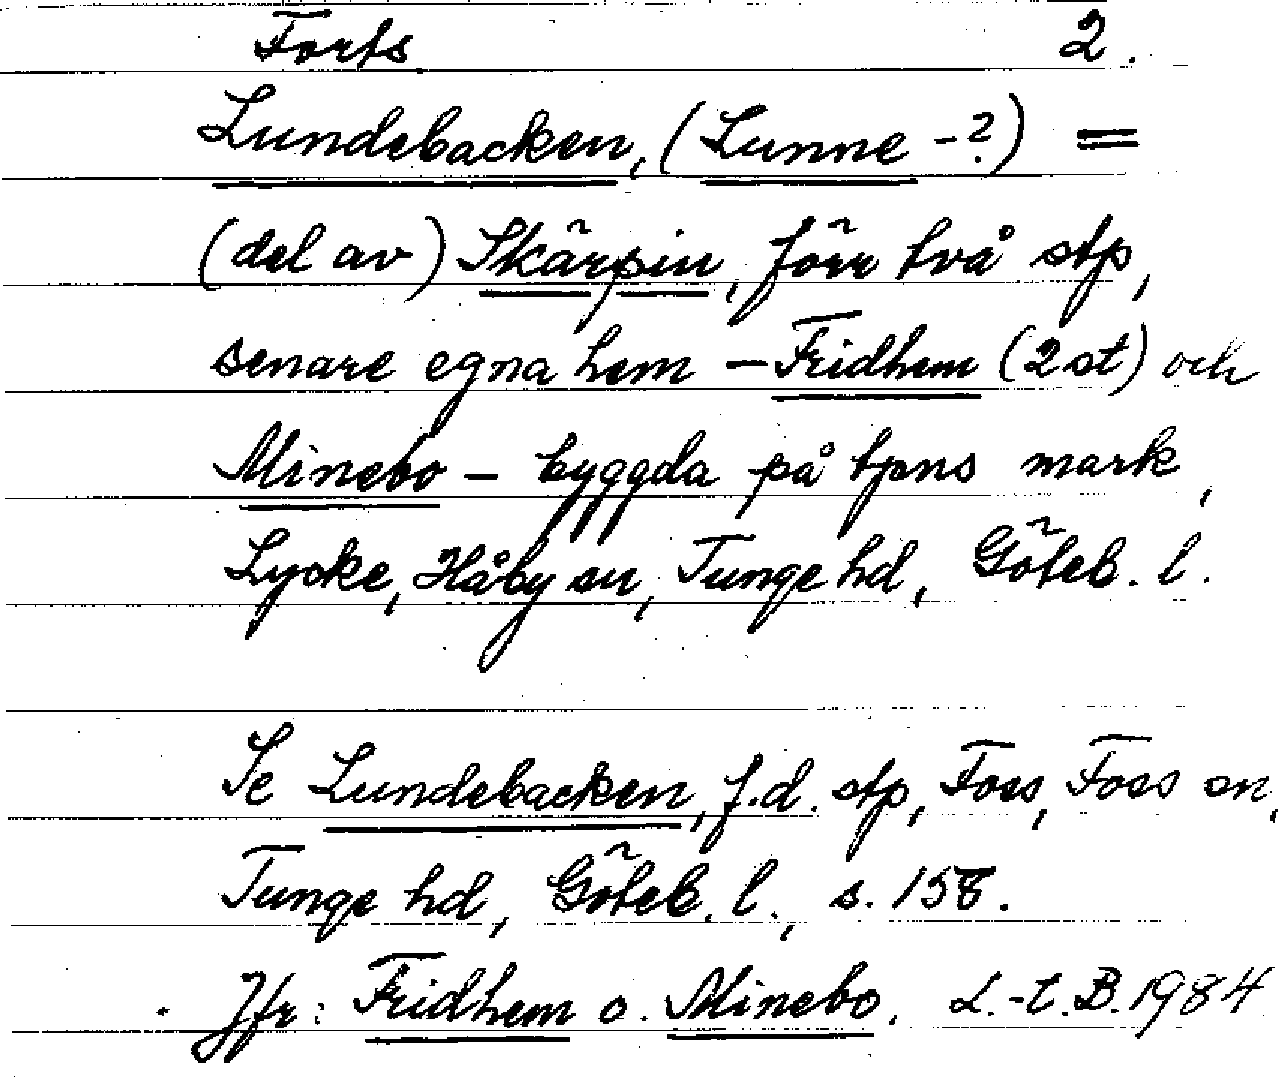 Forts 2.
Lundebacken, (Lunne -?) =
(del av) Skärpin, förr två stp,
senare egna hem – Fridhem (2 st) och
Minebo – byggda på tjens mark,
Lycke, Håby sn, Tunge hd, Göteb. l.
Se Lundebacken, f.d. stp, Foss, Foss sn,
Tunge hd, Göteb. l., s. 158.
Jfr: Fridhem o. Minebo. L.-t. B. 1984